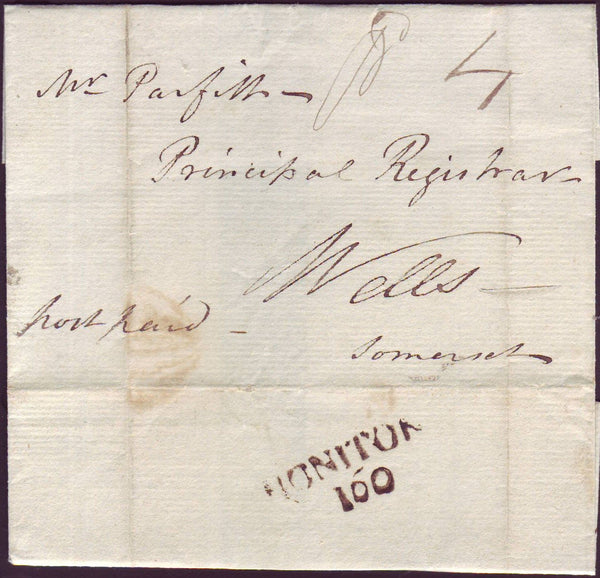 Mr Parfitt - Pd 4
Principal Registrar
Wells -
post paid -
Somerset
HONITON
160